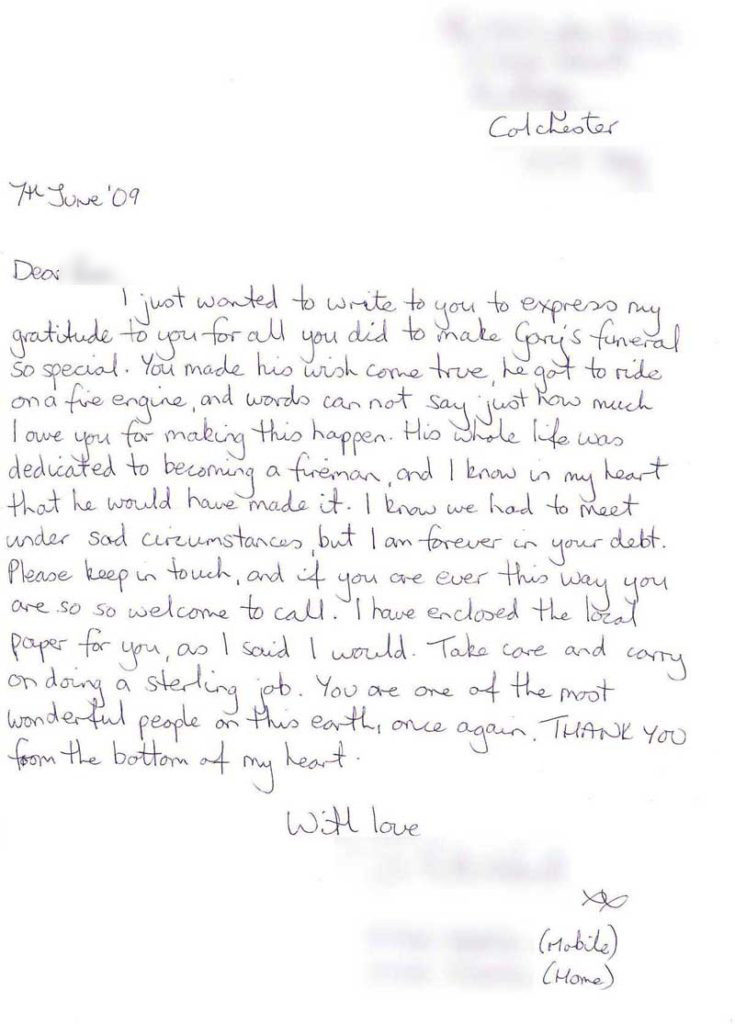 Colchester
7th June '09
Dear
I just wanted to write to you to express my
gratitude to you for all you did to make Gary's funeral
so special. You made his wish come true, he got to ride
on a fire engine, and words can not say just how much
I owe you for making this happen. His whole life was
dedicated to becoming a fireman, and I know in my heart
that he would have made it. I know we had to meet
under sad circumstances, but I am forever in your debt.
Please keep in touch, and if you are ever this way you
are so so welcome to call. I have enclosed the local
paper for you, as I said I would. Take care and carry
on doing a sterling job. You are one of the most
wonderful people on this earth, once again. THANK YOU
from the bottom of my heart.
With love
xx
(Mobile)
(Home)